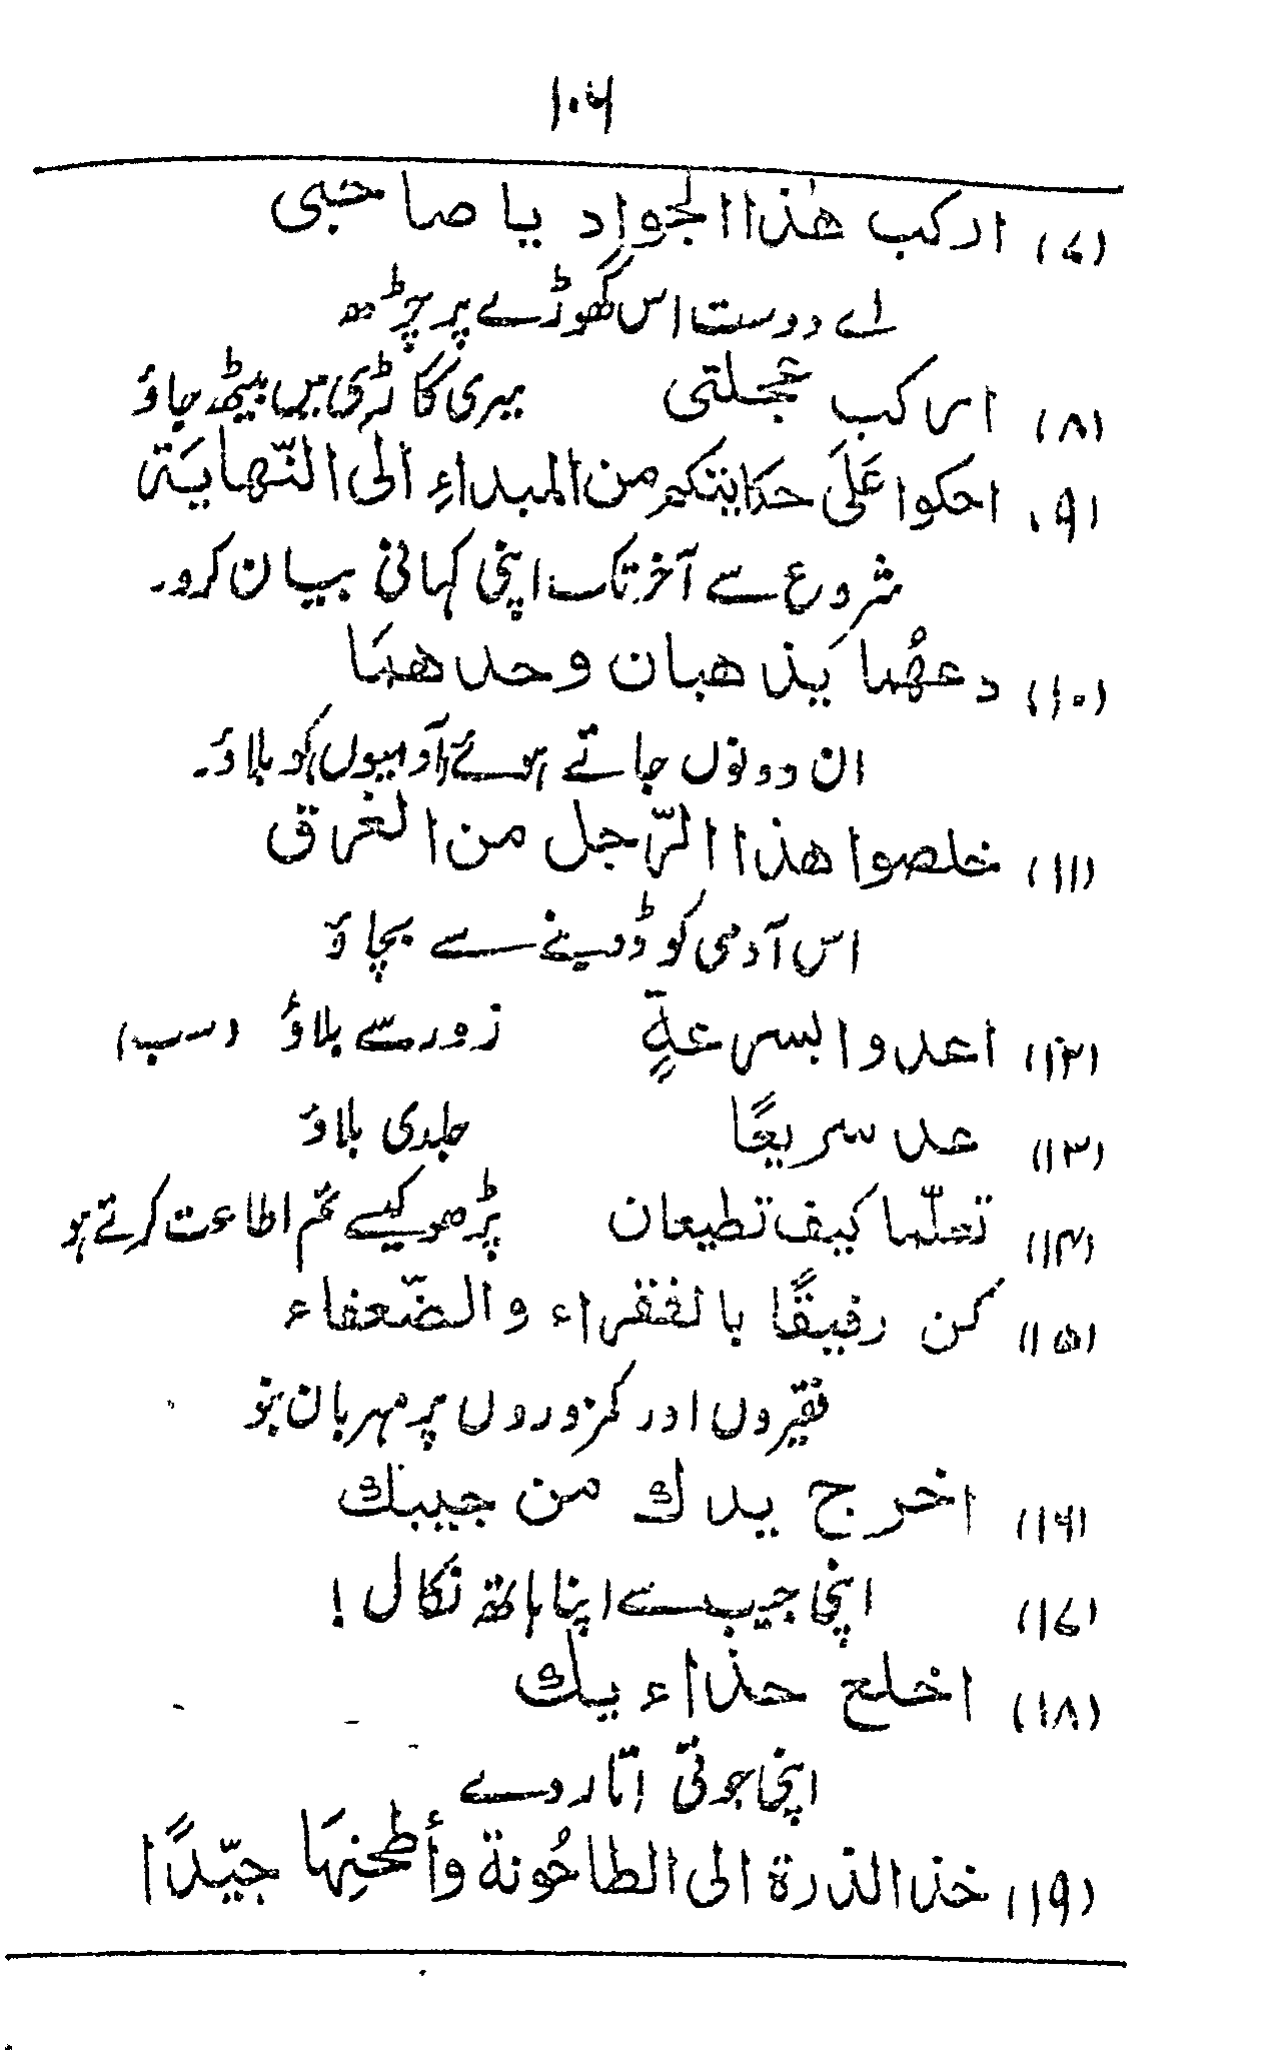 ۱۰۶
(۷) ارکب هٰذا الجواد یا صاحبی
اے دوست اس گھوڑے پر چڑھ
(۸) ارکب عجلتی میری گاڑی میں بیٹھ جاؤ
(۹) احکوا عَلَیَ حکایتکم من المبداءِ الی النّهایَة
شروع سے آخر تک اپنی کہانی بیان کرو۔
(۱۰) دعهُما یذهبان وحدهمَا
ان دونوں جاتے ہوئے آدمیوں کو بلاؤ۔
(۱۱) خلصوا هذا الرّجل من الغرق
اس آدمی کو ڈوبنے سے بچاؤ
(۱۲) اعدوا بسرعةٍ زور سے بلاؤ (سب)
(۱۳) عد سریعًا جلدی بلاؤ
(۱۴) تعلّما کیف تطیعان پڑھو کیسے تم اطاعت کرتے ہو
(۱۵) کن رفیقًا بالفقراء والضّعفاء
فقیروں اور کمزوروں پر مہربان بنو
(۱۶) اخرج یدك من جیبك
(۱۷) اپنی جیب سے اپنا ہاتھ نکال !
(۱۸) اخلع حذاءیك
اپنی جوتی اتار دے
(۱۹) خذ الذرة الی الطاحُونة وأطحنِهَا جیّدًا